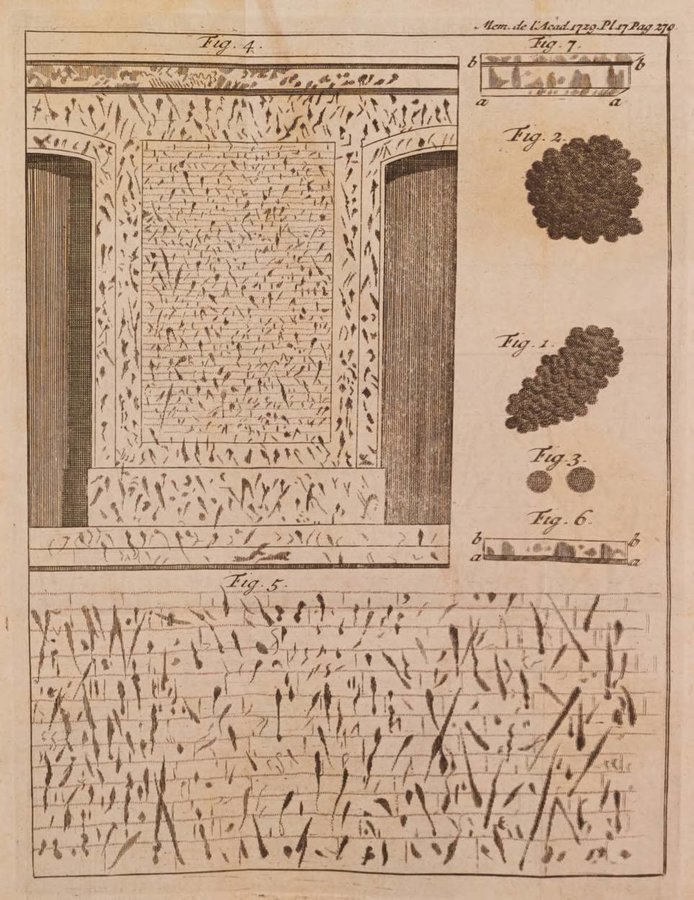 Mem. de l'Acad. 1729. Pl. 17. Pag. 270.
Fig. 4.
Fig. 7.
b b
a a
Fig. 2.
Fig. 1.
Fig. 3.
Fig. 6.
b b
a a
Fig. 5.